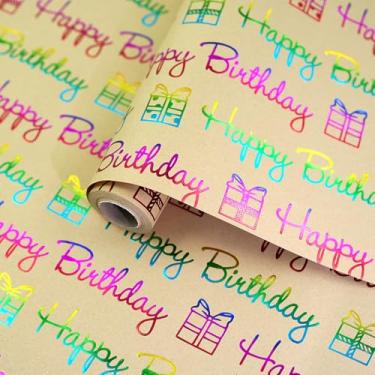 Happy Birthday
Happy Birthday
Happy Birthday
Happy Birthday
Happy Birthday
Happy Birthday
Birthday
Happy
Happy Birthday
Happy Birthday
Happy